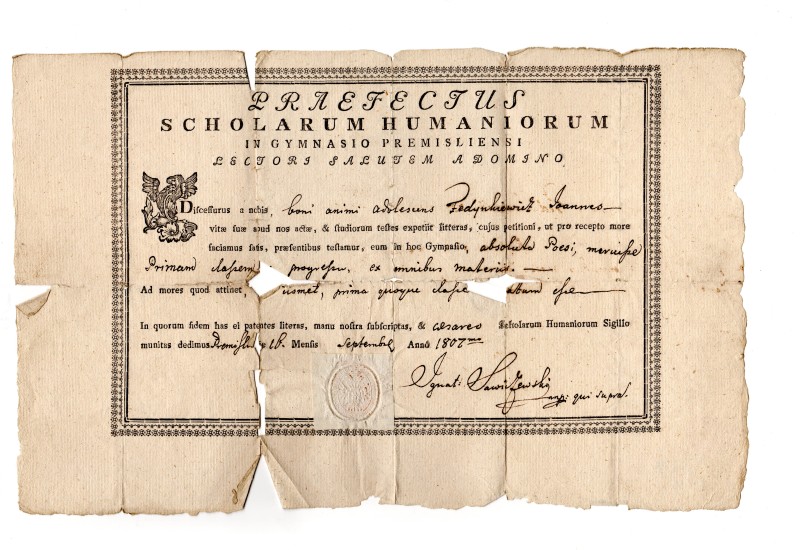 PRAEFECTUS
SCHOLARUM HUMANIORUM
IN GYMNASIO PREMISLIENSI
LECTORI SALUTEM A DOMINO
Discessurus a nobis, boni animi adolescens Fedynkiewicz Joannes
vitæ suæ apud nos actæ, & studiorum testes expetiit litteras, cujus petitioni, ut pro recepto more
faciamus satis, præsentibus testamur, eum in hoc Gymnasio, absoluta Poesi, meruisse
Primam classem progressu, ex omnibus materiis.
Ad mores quod attinet, prima quoque classe esse
In quorum fidem has ei patentes literas, manu nostra subscriptas, & cæsareo Scholarum Humaniorum Sigillo
munitas dedimus 16. Mensis Septembr. Anno 1807mo
Ignati Sawiczewski
qui supra.